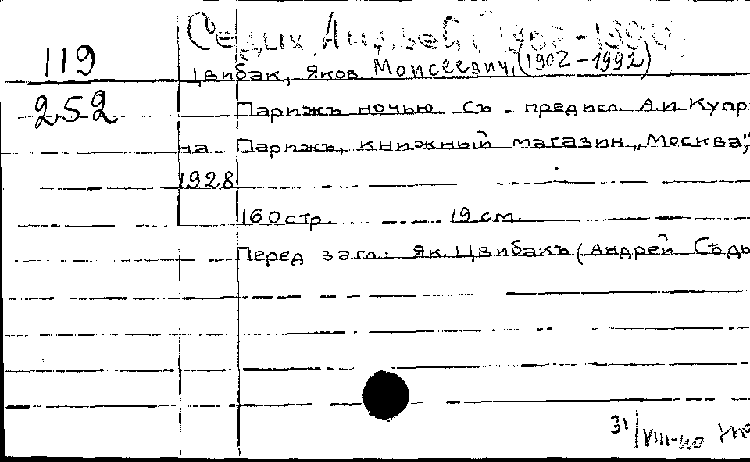 119
252
Седых, Андрей (1902-1990)
Цвибак, Яков Моисеевич, (1902-1992)
Парижъ ночью Съ предисл А.И Купри
на Парижъ, книжный магазин „Москва",
1928
160 стр. 19 см.
Перед загл: Як Цвибакъ (Андрей Сѣды
31/VIII-40